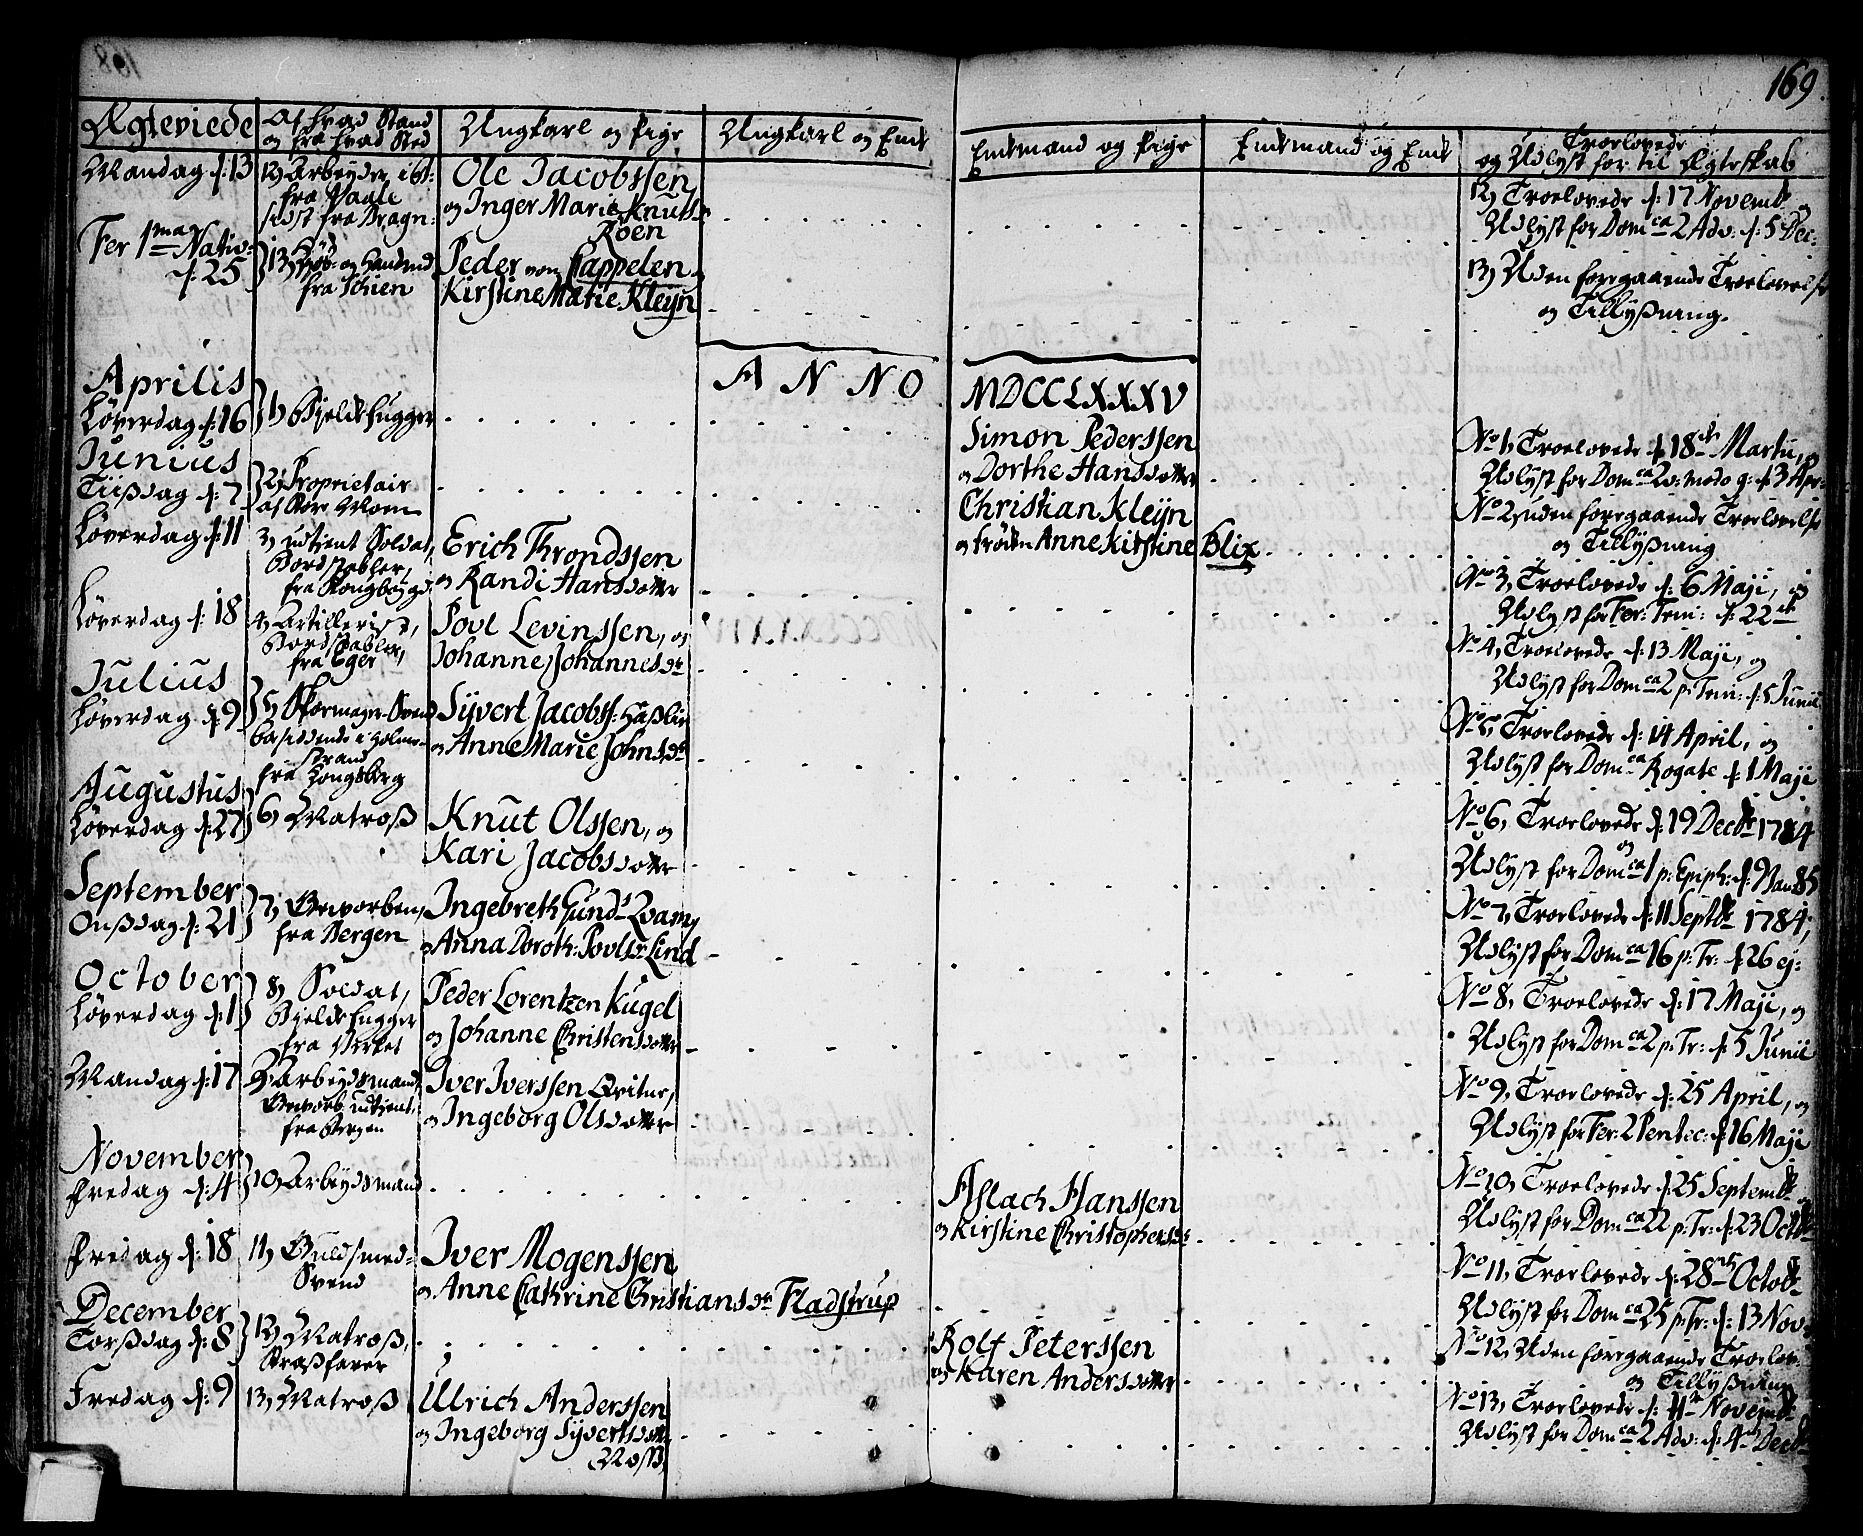 169.
Ægteviede
Af hvad Stand
og fra hvad Sted
Ungkarl og Pige
Ungkarl og Enke
Enkemand og Pige
Enkemand og Enke
Troelovede
og Udlyst for til Ægteskab
Mandag d: 13
12, Arbeyder
fra Vaale
sidst fra Dragn:
Ole Jacobssen
og Inger Marie Knuts
Roen
12, Troelovede d: 17 Novemb: og
Udlyst for Dom ca 2 Adv: d: 5 Dec:
Fer 1ma Nativ:
d: 25
13,
fra Schien
Peder von Cappelen
Kirstine Marie Kleyn
13, Uden foregaaende Troelovelse
og Tillysning.
A N N O
MDCCLXXXV
Aprilis
Løverdag d: 16
1, Bjelkehugger
Simon Pederssen
og Dorthe Hansdatter
No 1, Troelovede d: 18de Martii, og
Udlyst for Dom ca d: 3 Apr:
Junius
Tiisdag d: 7
2, Proprietair
Christian Kleyn
og frøken Anne Kirstine Blix
No 2, uden foregaaende Troelovelse
og Tillysning
Løverdag d: 11
3, udtient Soldat,
Bordstabler,
fra Kongbygd
Erich Throndssen
og Randi Hansdatter
No 3, Troelovede d: 6 Maji, og
Udlyst for Fer: Trin: d: 22de
Løverdag d: 18
4, Artillerist,
Bordstabler,
fra Eger
Povl Levinssen, og
Johanne Johannesdr
No 4, Troelovede d: 13 Maji, og
Udlyst for Dom ca 2 p: Trin: d: 5 Junii
Julius
Løverdag d: 9
5, Skomager-Svend
besiddende i Holme-
strand
fra Kongsberg
Syvert Jacobss: Haslie
og Anne Marie Johnsdr
No 5, Troelovede d: 14 April, og
Udlyst for Dom ca Rogate d: 1 Maji
Augustus
Løverdag d: 27
6, Matros
Knut Olssen, og
Kari Jacobsdatter
No 6, Troelovede d: 19 Decbr 1784
og
Udlyst for Dom ca 1 p: Epiph: d: 9 Jan 85
September
Onsdag d: 21
7, Gevorben,
fra Bergen
Ingebreth Gunds Qvam,
og Anna Doroth: Povlsdr Lind
No 7, Troelovede d: 11 Septbr 1784,
Udlyst for Dom ca 16 p: Tr: d: 26 ej:
October
Løverdag d: 1
8, Soldat,
Bjelkehugger
fra Virket
Peder Lorentzen Kugel
og Johanne Christensdatter
No 8, Troelovede d: 17 Maji, og
Udlyst for Dom ca 2 p: Tr: d: 5 Junii
Mandag d: 17
9, Arbeydsmand,
Gevorb: udtient,
fra Bergen
Iver Iverssen Qvitne,
og Ingeborg Olsdatter
No 9, Troelovede d: 25 April, og
Udlyst for Fer: 2 Pentec: d: 16 Maji
November
Fredag d: 4
10, Arbeydsmand
Aslach Hanssen
og Kirstine Christophersdr
No 10, Troelovede d: 25 Septemb: og
Udlyst for Dom ca 22 p: Tr: d: 23 Octbr
Fredag d: 18
11, Guldsmed-
Svend
Iver Mogenssen
og Anne Cathrine Christiansdr Fladstrup
No 11, Troelovede d: 28de Octob:
Udlyst for Dom ca 25 p: Tr: d: 13 Nov:
December
Torsdag d: 8
12, Matros,
Rolf Peterssen
og Karen Andersdatter
No 12, Uden foregaaende Troelov:
og Tillysning
Fredag d: 9
13, Matros
Ulrich Anderssen
og Ingeborg Syvertsdatter
Moss,
No 13, Troelovede d: 11te Novemb:
Udlyst for Dom ca 2 Adv: d: 4de Decbr